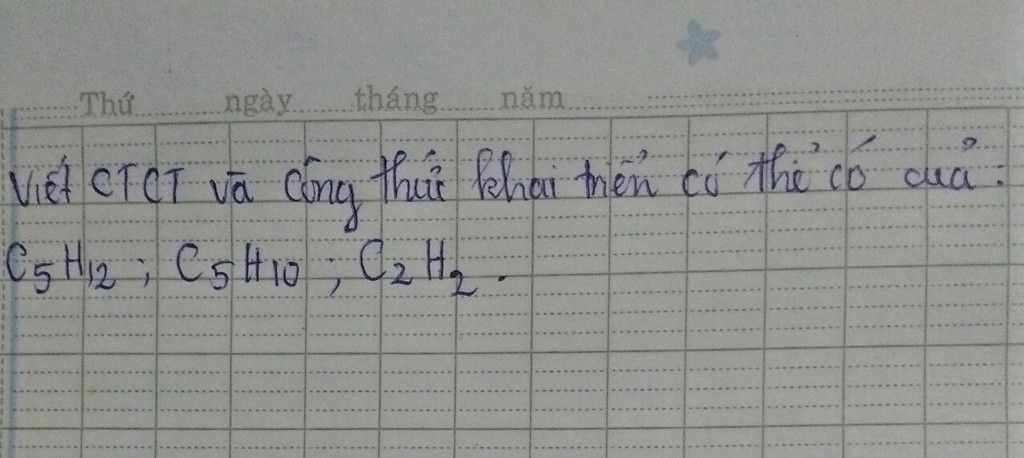 Thứ ngày tháng năm
Viết CTCT và công thức khai triển có thể có của:
C5H12; C5H10; C2H2.